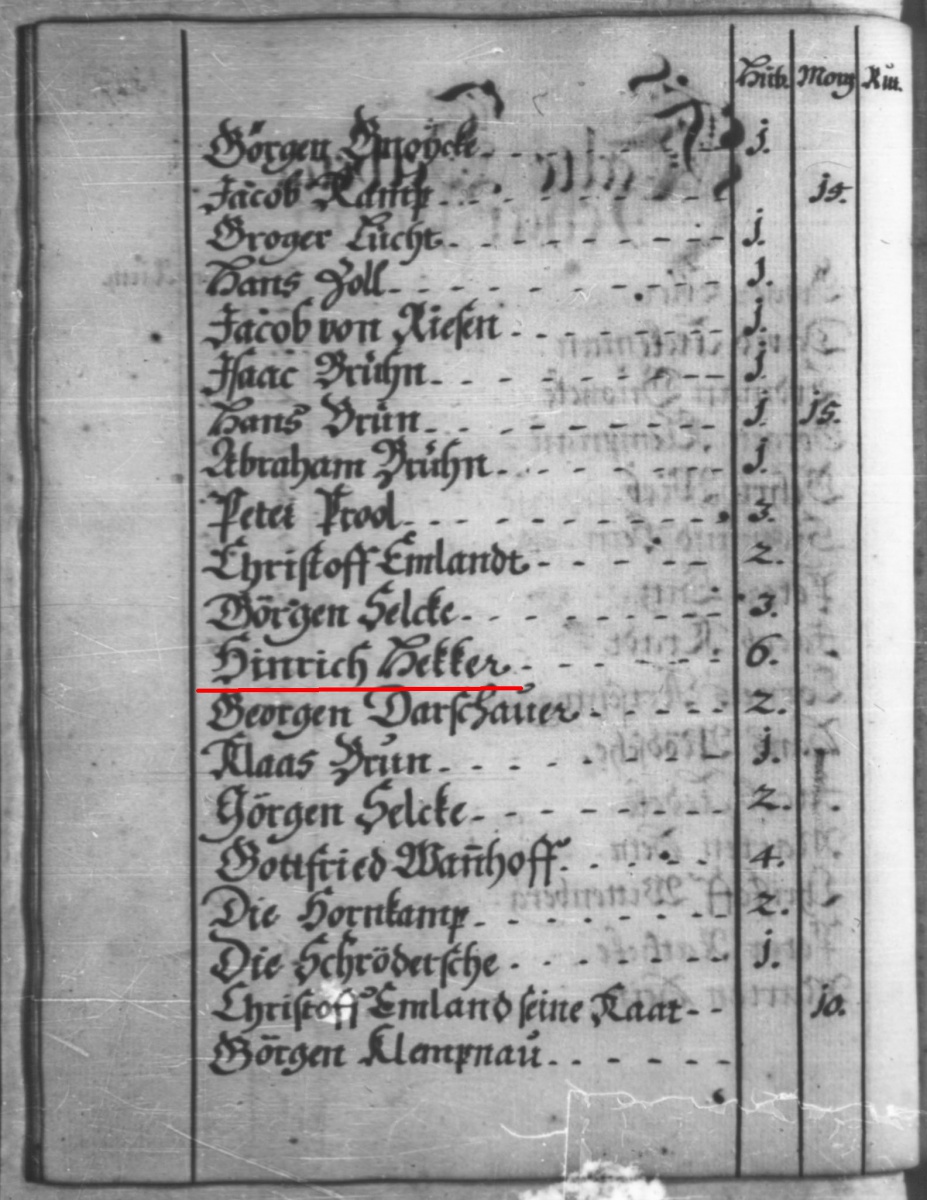 Hüb. Morg Rut.
Görgen Gnoycke 1.
Jacob Kamp 15.
Groger Lücht 1.
Hans Zoll 1.
Jacob von Riesen 1.
Isaac Brühn 1.
Hans Brün 1. 15.
Abraham Brühn 1.
Peter Prool 3.
Christoff Emlandt 2.
Görgen Selcke 3.
Hinrich Hekker 6.
Georgen Darschauer 2.
Klaas Brun 1.
Görgen Selcke 2.
Gottfried Wañhoff 4.
Die Hornkamp 2.
Die Schrödersche 1.
Christoff Emland seine Kaat 10.
Görgen Klempnau